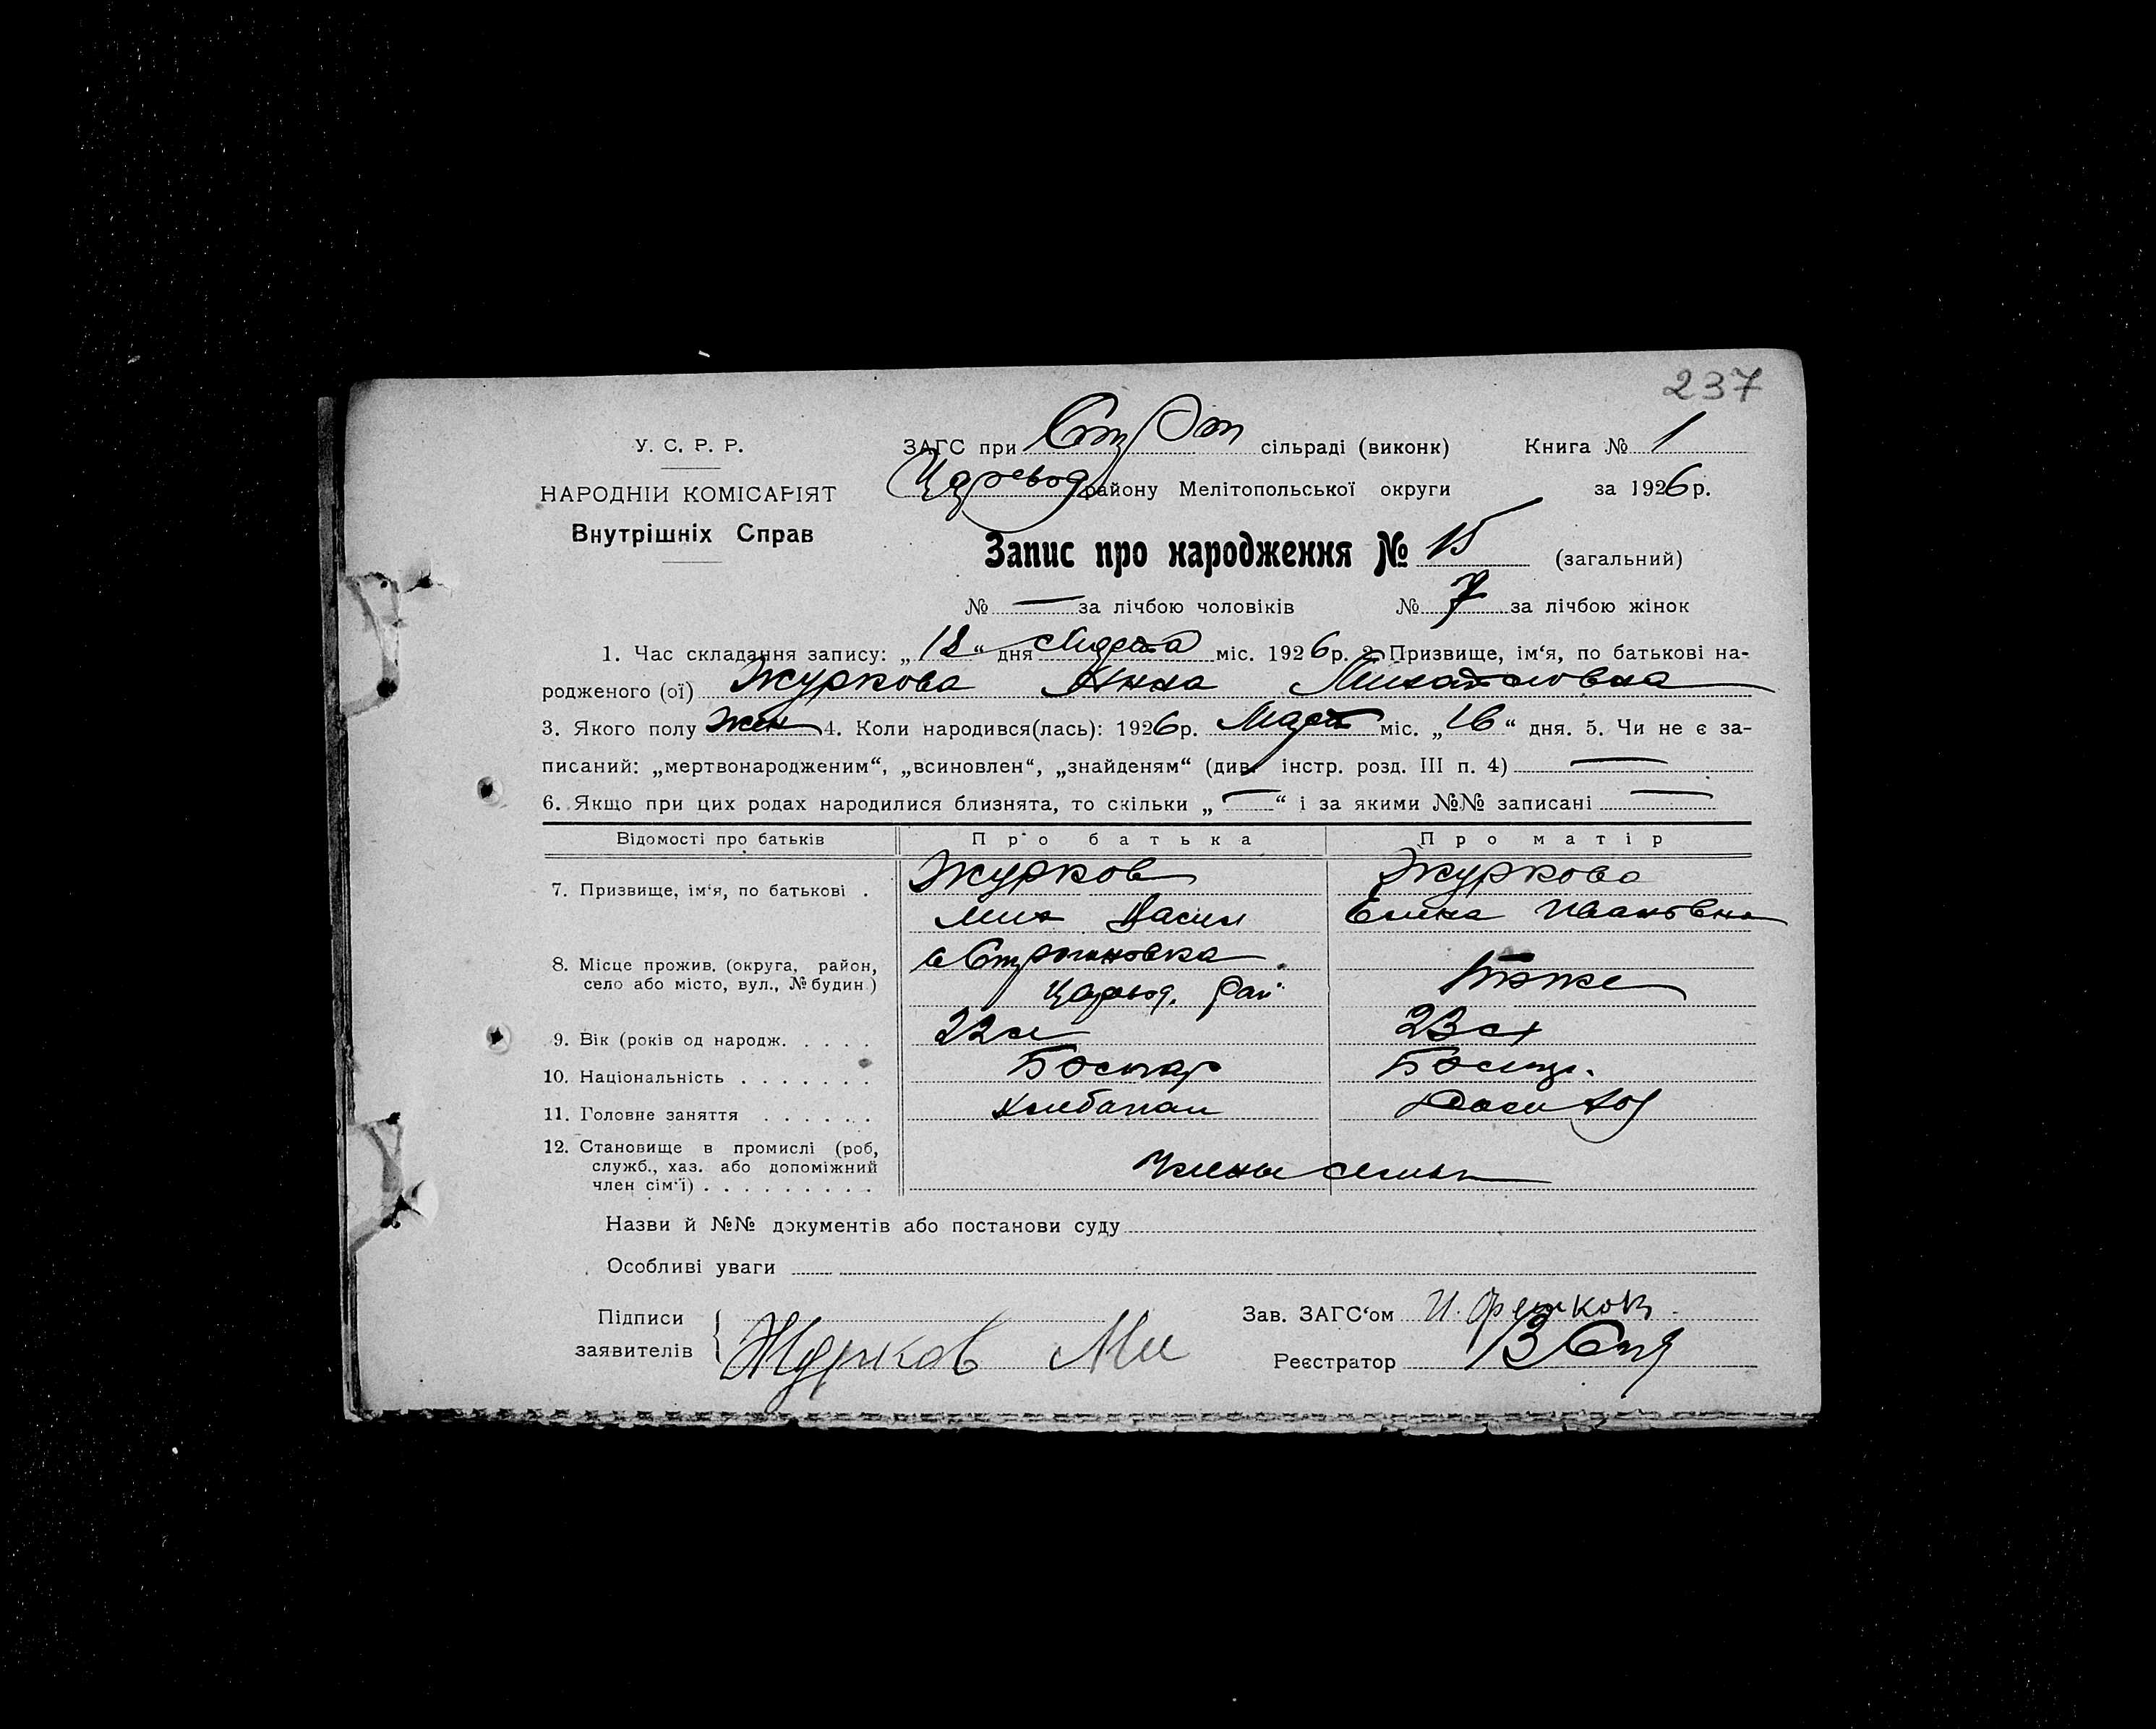 237
У. С. Р. Р.
ЗАГС при сільраді (виконк) Книга № 1
НАРОДНІЙ КОМІСАРІЯТ
Царевод району Мелітопольської округи за 1926 р.
Внутрішніх Справ
Запис про народження № 15 (загальний)
№ — за лічбою чоловіків № 7 за лічбою жінок
1. Час складання запису: „18“ дня Марта міс. 1926 р. 2. Призвище, ім‘я, по батькові на-
родженого (ої) Журкова Анна Михайловна
3. Якого полу жен 4. Коли народився(лась): 1926 р. Март міс. „16“ дня. 5. Чи не є за-
писаний: „мертвонародженим“, „всиновлен“, „знайденям“ (див. інстр. розд. III п. 4) —
6. Якщо при цих родах народилися близнята, то скільки „—“ і за якими №№ записані —
Відомості про батьків Про батька Про матір
7. Призвище, ім‘я, по батькові . Журков Журкова
Мих Васил Елена Ивановна
8. Місце прожив. (округа, район, с Строгановка
село або місто, вул., № будин.) Царевод. рай тоже
9. Вік (років од народж. . . . . 22 л 23 л
10. Національність . . . . . . . Болгар Болгар.
11. Головне заняття . . . . . . Хлебопаш Домохоз
12. Становище в промислі (роб,
служб., хаз. або допоміжний Члены семьи
член сім‘ї) . . . . . . . . .
Назви й №№ документів або постанови суду
Особливі уваги
Підписи Зав. ЗАГС‘ом И.
заявителів Журков Ми Реєстратор